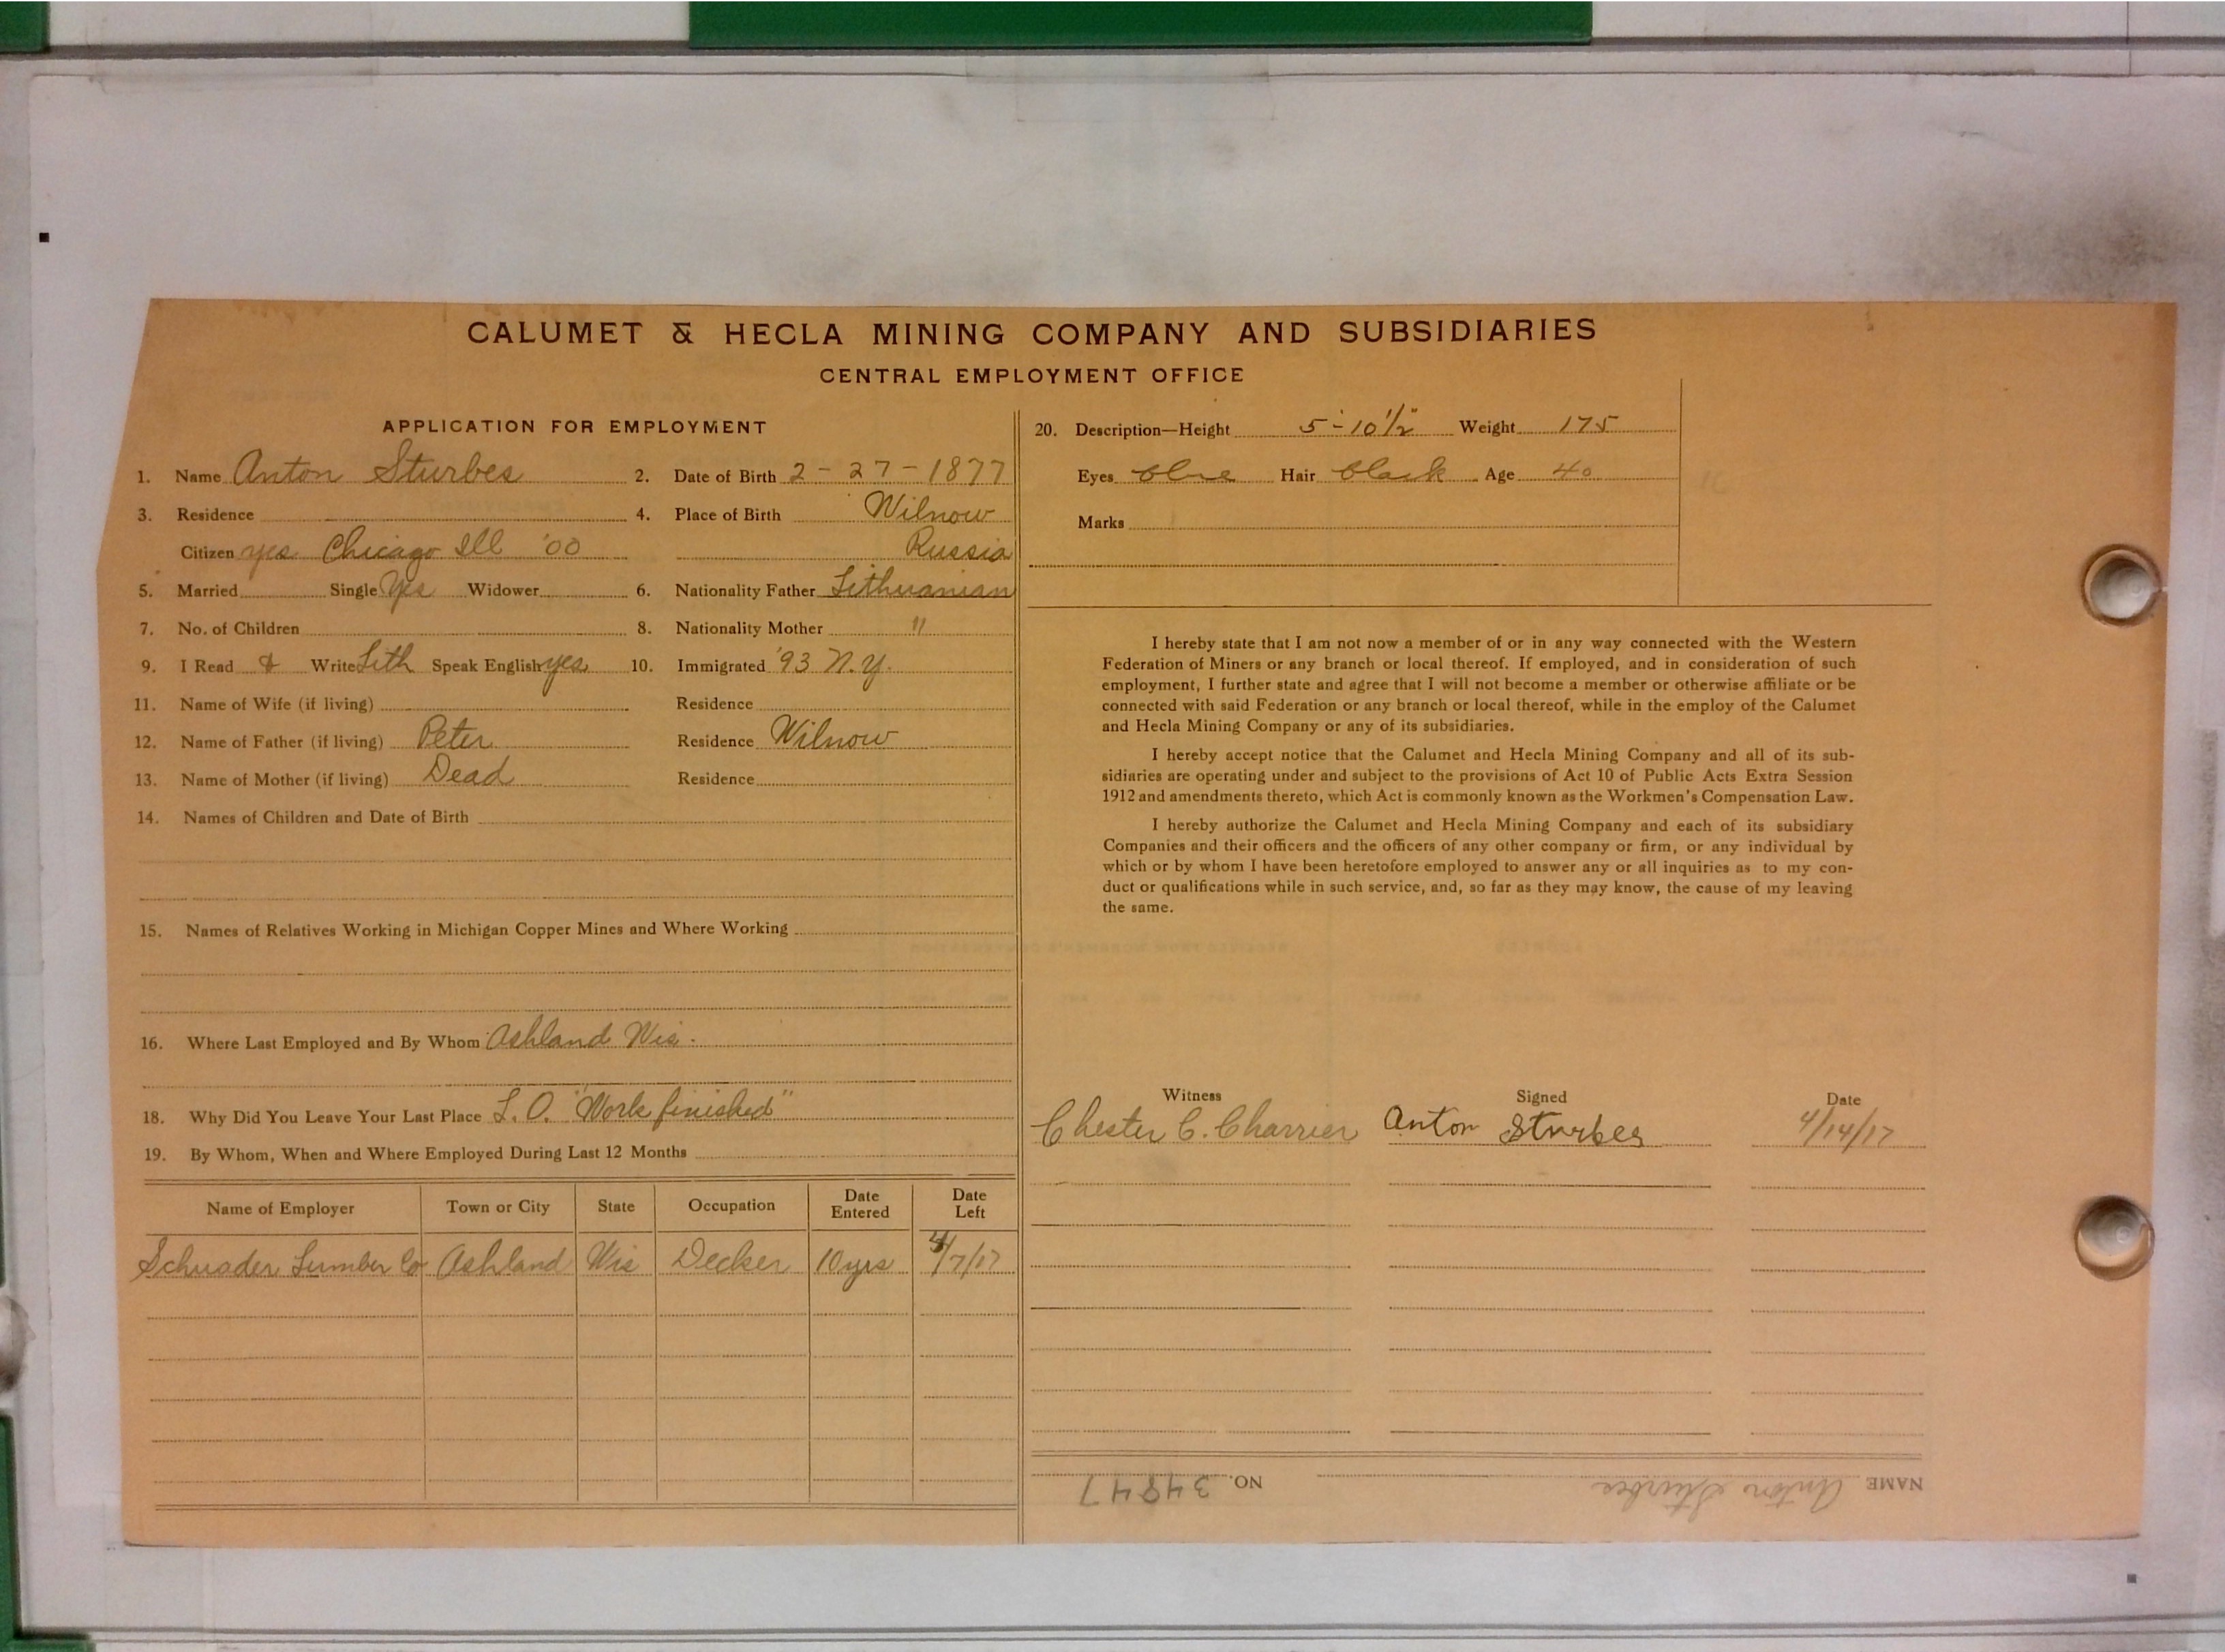 CALUMET & HECLA MINING COMPANY AND SUBSIDIARIES
CENTRAL EMPLOYMENT OFFICE
APPLICATION FOR EMPLOYMENT
1. Name Anton Sturbes 2. Date of Birth 2-27-1877
3. Residence 4. Place of Birth Wilnow
Citizen yes Chicago Ill '00 Russia
5. Married Single Yes Widower 6. Nationality Father Lithuanian
7. No. of Children 8. Nationality Mother "
9. I Read & Write Lith Speak English yes 10. Immigrated '93 N.Y.
11. Name of Wife (if living) Residence
12. Name of Father (if living) Peter Residence Wilnow
13. Name of Mother (if living) Dead Residence
14. Names of Children and Date of Birth
15. Names of Relatives Working in Michigan Copper Mines and Where Working
16. Where Last Employed and By Whom Ashland Wis.
18. Why Did You Leave Your Last Place L.O. "Work finished"
19. By Whom, When and Where Employed During Last 12 Months
Name of Employer Town or City State Occupation Date Entered Date Left
Schrader Lumber Co Ashland Wis Decker 10 yrs 4/7/17
20. Description—Height 5'-10½" Weight 175
Eyes blue Hair black Age 40
Marks
I hereby state that I am not now a member of or in any way connected with the Western
Federation of Miners or any branch or local thereof. If employed, and in consideration of such
employment, I further state and agree that I will not become a member or otherwise affiliate or be
connected with said Federation or any branch or local thereof, while in the employ of the Calumet
and Hecla Mining Company or any of its subsidiaries.
I hereby accept notice that the Calumet and Hecla Mining Company and all of its sub-
sidiaries are operating under and subject to the provisions of Act 10 of Public Acts Extra Session
1912 and amendments thereto, which Act is commonly known as the Workmen's Compensation Law.
I hereby authorize the Calumet and Hecla Mining Company and each of its subsidiary
Companies and their officers and the officers of any other company or firm, or any individual by
which or by whom I have been heretofore employed to answer any or all inquiries as to my con-
duct or qualifications while in such service, and, so far as they may know, the cause of my leaving
the same.
Witness Signed Date
Chester C. Charrier Anton Sturbes 4/14/17
NAME Anton Sturbes NO. 34847